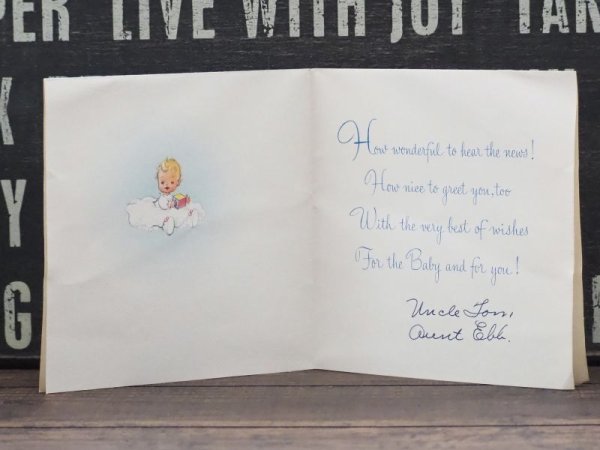 PER LIVE WITH JOY TAK
K
Y
G
How wonderful to hear the news!
How nice to greet you, too
With the very best of wishes
For the Baby and for you!
Uncle Tom,
Aunt Ebb.